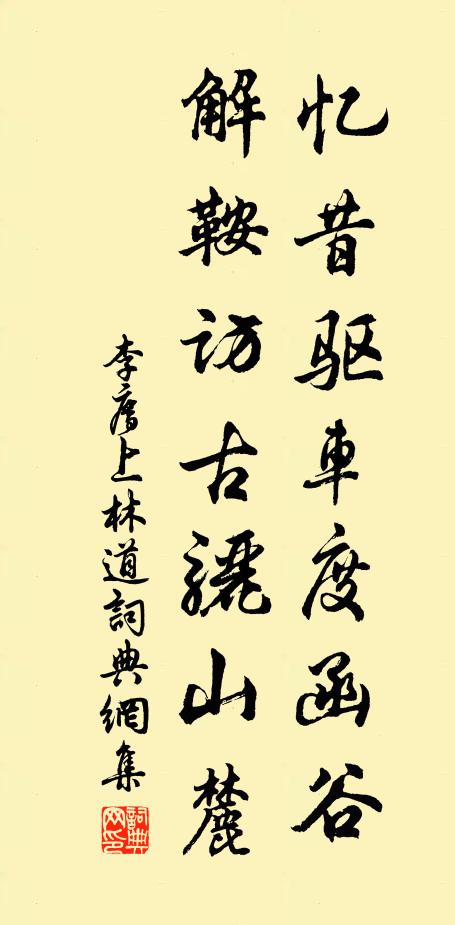 忆昔驱車度函谷
解鞍访古骊山麓
李廌上林道詞典網集
詞典网印